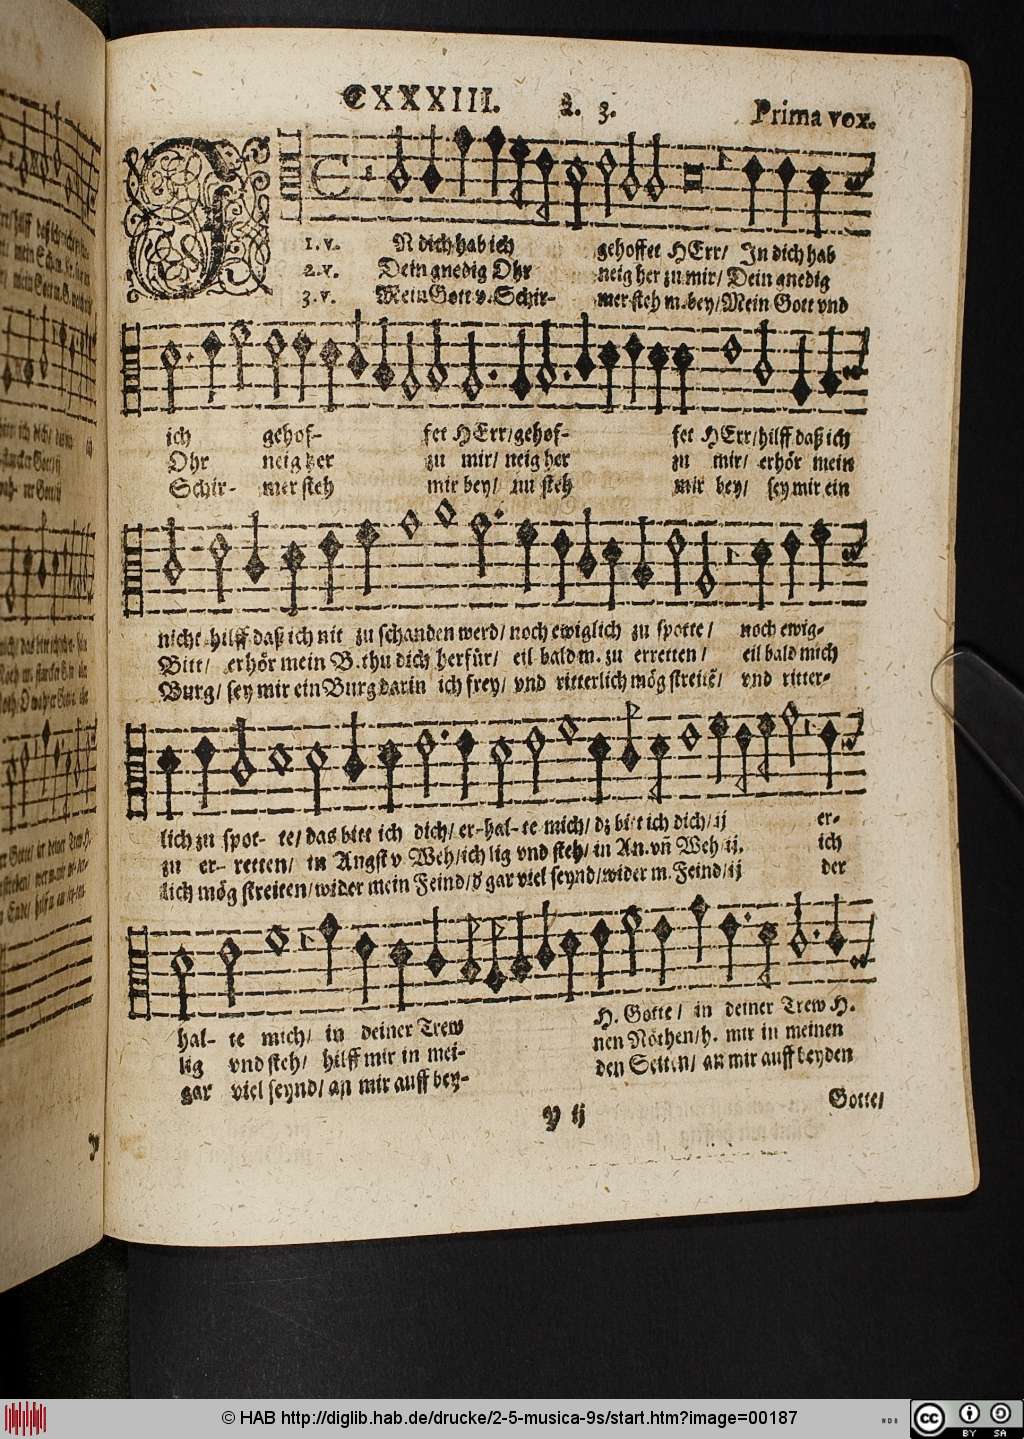 CXXXIII. à. 3. Prima vox.
1. v. N dich hab ich gehoffet HErr/ In dich hab
2. v. Dein gnedig Ohr neig her zu mir/ Dein gnedig
3. v. Mein Gott v. Schir- mer steh m. bey/ Mein Gott vnd
ich gehof- fet HErr/ gehof- fet HErr/ hilff daß ich
Ohr neig her zu mir/ neig her zu mir/ erhör mein
Schir- mer steh mir bey/ mir steh mir bey/ sey mir ein
nicht hilff daß ich nit zu schanden werd/ noch ewiglich zu spotte/ noch ewig-
Bitt/ erhör mein B. thu dich herfür/ eil bald m. zu erretten/ eil bald mich
Burg/ sey mir ein Burg darin ich frey/ vnd ritterlich mög streitē/ vnd ritter-
lich zu spot- te/ das bitt ich dich/ er- hal- te mich/ dz bitt ich dich/ ij er-
zu er- retten/ in Angst v Weh/ ich lig vnd steh/ in An. vñ Weh/ ij. ich
lich mög streiten/ wider mein Feind/ d gar viel seynd/ wider m. Feind/ ij der
hal- te mich/ in deiner Trew H. Gotte/ in deiner Trew H.
lig vnd steh/ hilff mir in mei- nen Nöthen/ h. mir in meinen
gar viel seynd/ an mir auff bey- den Seiten/ an mir auff beyden
Y ij Gotte/
© HAB http://diglib.hab.de/drucke/2-5-musica-9s/start.htm?image=00187
cc BY SA